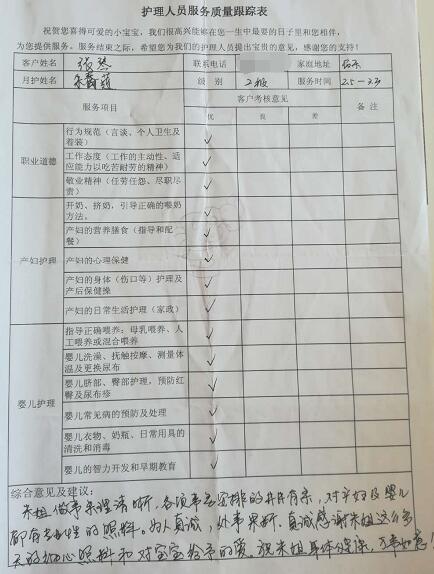 护理人员服务质量跟踪表
祝贺您喜得可爱的小宝宝，我们很高兴能够在您一生中最要的日子里和您相伴，
为您提供服务。服务结束之际，希望您为我们的护理人员提出宝贵的意见，感谢您的支持！
客户姓名 张琴 联系电话 家庭地址
月护姓名 朱 级 别 2级 服务时间 2.5—3.3
服务项目 客户考核意见 备 注
优 良 差
职业道德
行为规范（言谈、个人卫生及
着装） ✓
工作态度（工作的主动性、适
应能力以吃苦耐劳的精神） ✓
敬业精神（任劳任怨、尽职尽
责） ✓
产妇护理
开奶、挤奶，引导正确的喂奶
方法。 ✓
产妇的营养膳食（指导和配
餐） ✓
产妇的心理保健 ✓
产妇的身体（伤口等）护理及
产后保健操 ✓
产妇的日常生活护理（家政） ✓
婴儿护理
指导正确喂养：母乳喂养、人
工喂养或混合喂养 ✓
婴儿洗澡、抚触按摩、测量体
温及更换尿布 ✓
婴儿脐部、臀部护理，预防红
臀及尿布疹 ✓
婴儿常见病的预防及处理 ✓
婴儿衣物、奶瓶、日常用具的
清洗和消毒 ✓
婴儿的智力开发和早期教育 ✓
综合意见及建议：
朱姐做事条理清晰，各项事宜安排的井井有条，对产妇及婴儿
都有专业性的照料。为人真诚，处事果断，真诚感谢朱姐这么多
天的细心照料和对宝宝给予的爱。祝朱姐身体健康，万事如意！